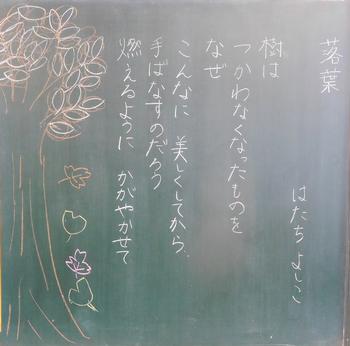 落葉
はたち よしこ
樹は
つかわなくなったものを
なぜ
こんなに 美しくしてから、
手ばなすのだろう
燃えるように かがやかせて